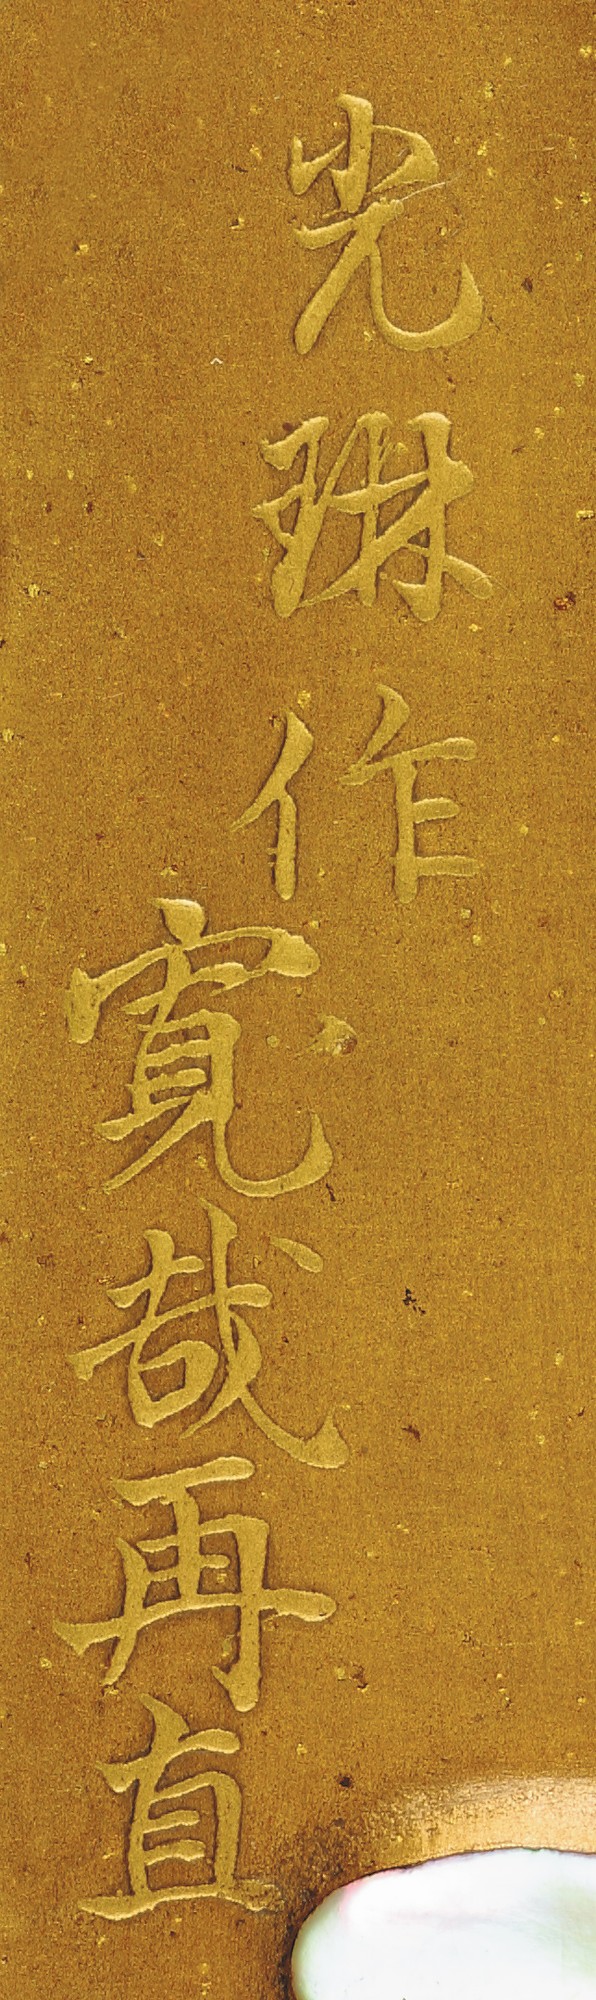 光琳作
寛哉再直